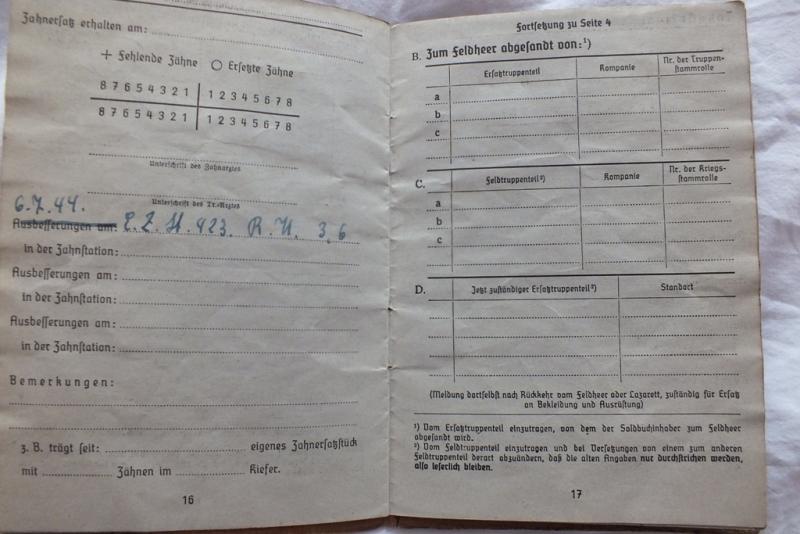 Zahnersatz erhalten am:
+ Fehlende Zähne ○ Ersetzte Zähne
8 7 6 5 4 3 2 1 | 1 2 3 4 5 6 7 8
8 7 6 5 4 3 2 1 | 1 2 3 4 5 6 7 8
Unterschrift des Zahnarztes
Unterschrift des Tr.-Arztes
6.7.44.
Ausbesserungen am: 423. R.U. 3,6
in der Zahnstation:
Ausbesserungen am:
in der Zahnstation:
Ausbesserungen am:
in der Zahnstation:
Bemerkungen:
z. B. trägt seit: eigenes Zahnersatzstück
mit Zähnen im Kiefer.
16
Fortsetzung zu Seite 4
B. Zum Feldheer abgesandt von:¹)
Ersatztruppenteil Kompanie Nr. der Truppen-
stammrolle
a
b
c
C. Feldtruppenteil²) Kompanie Nr. der Kriegs-
stammrolle
a
b
c
D. Jetzt zuständiger Ersatztruppenteil²) Standort
(Meldung dortselbst nach Rückkehr vom Feldheer oder Lazarett, zuständig für Ersatz
an Bekleidung und Ausrüstung)
¹) Vom Ersatztruppenteil einzutragen, von dem der Soldbuchinhaber zum Feldheer
abgesandt wird.
²) Vom Feldtruppenteil einzutragen und bei Versetzungen von einem zum anderen
Feldtruppenteil derart abzuändern, daß die alten Angaben nur durchstrichen werden,
also leserlich bleiben.
17